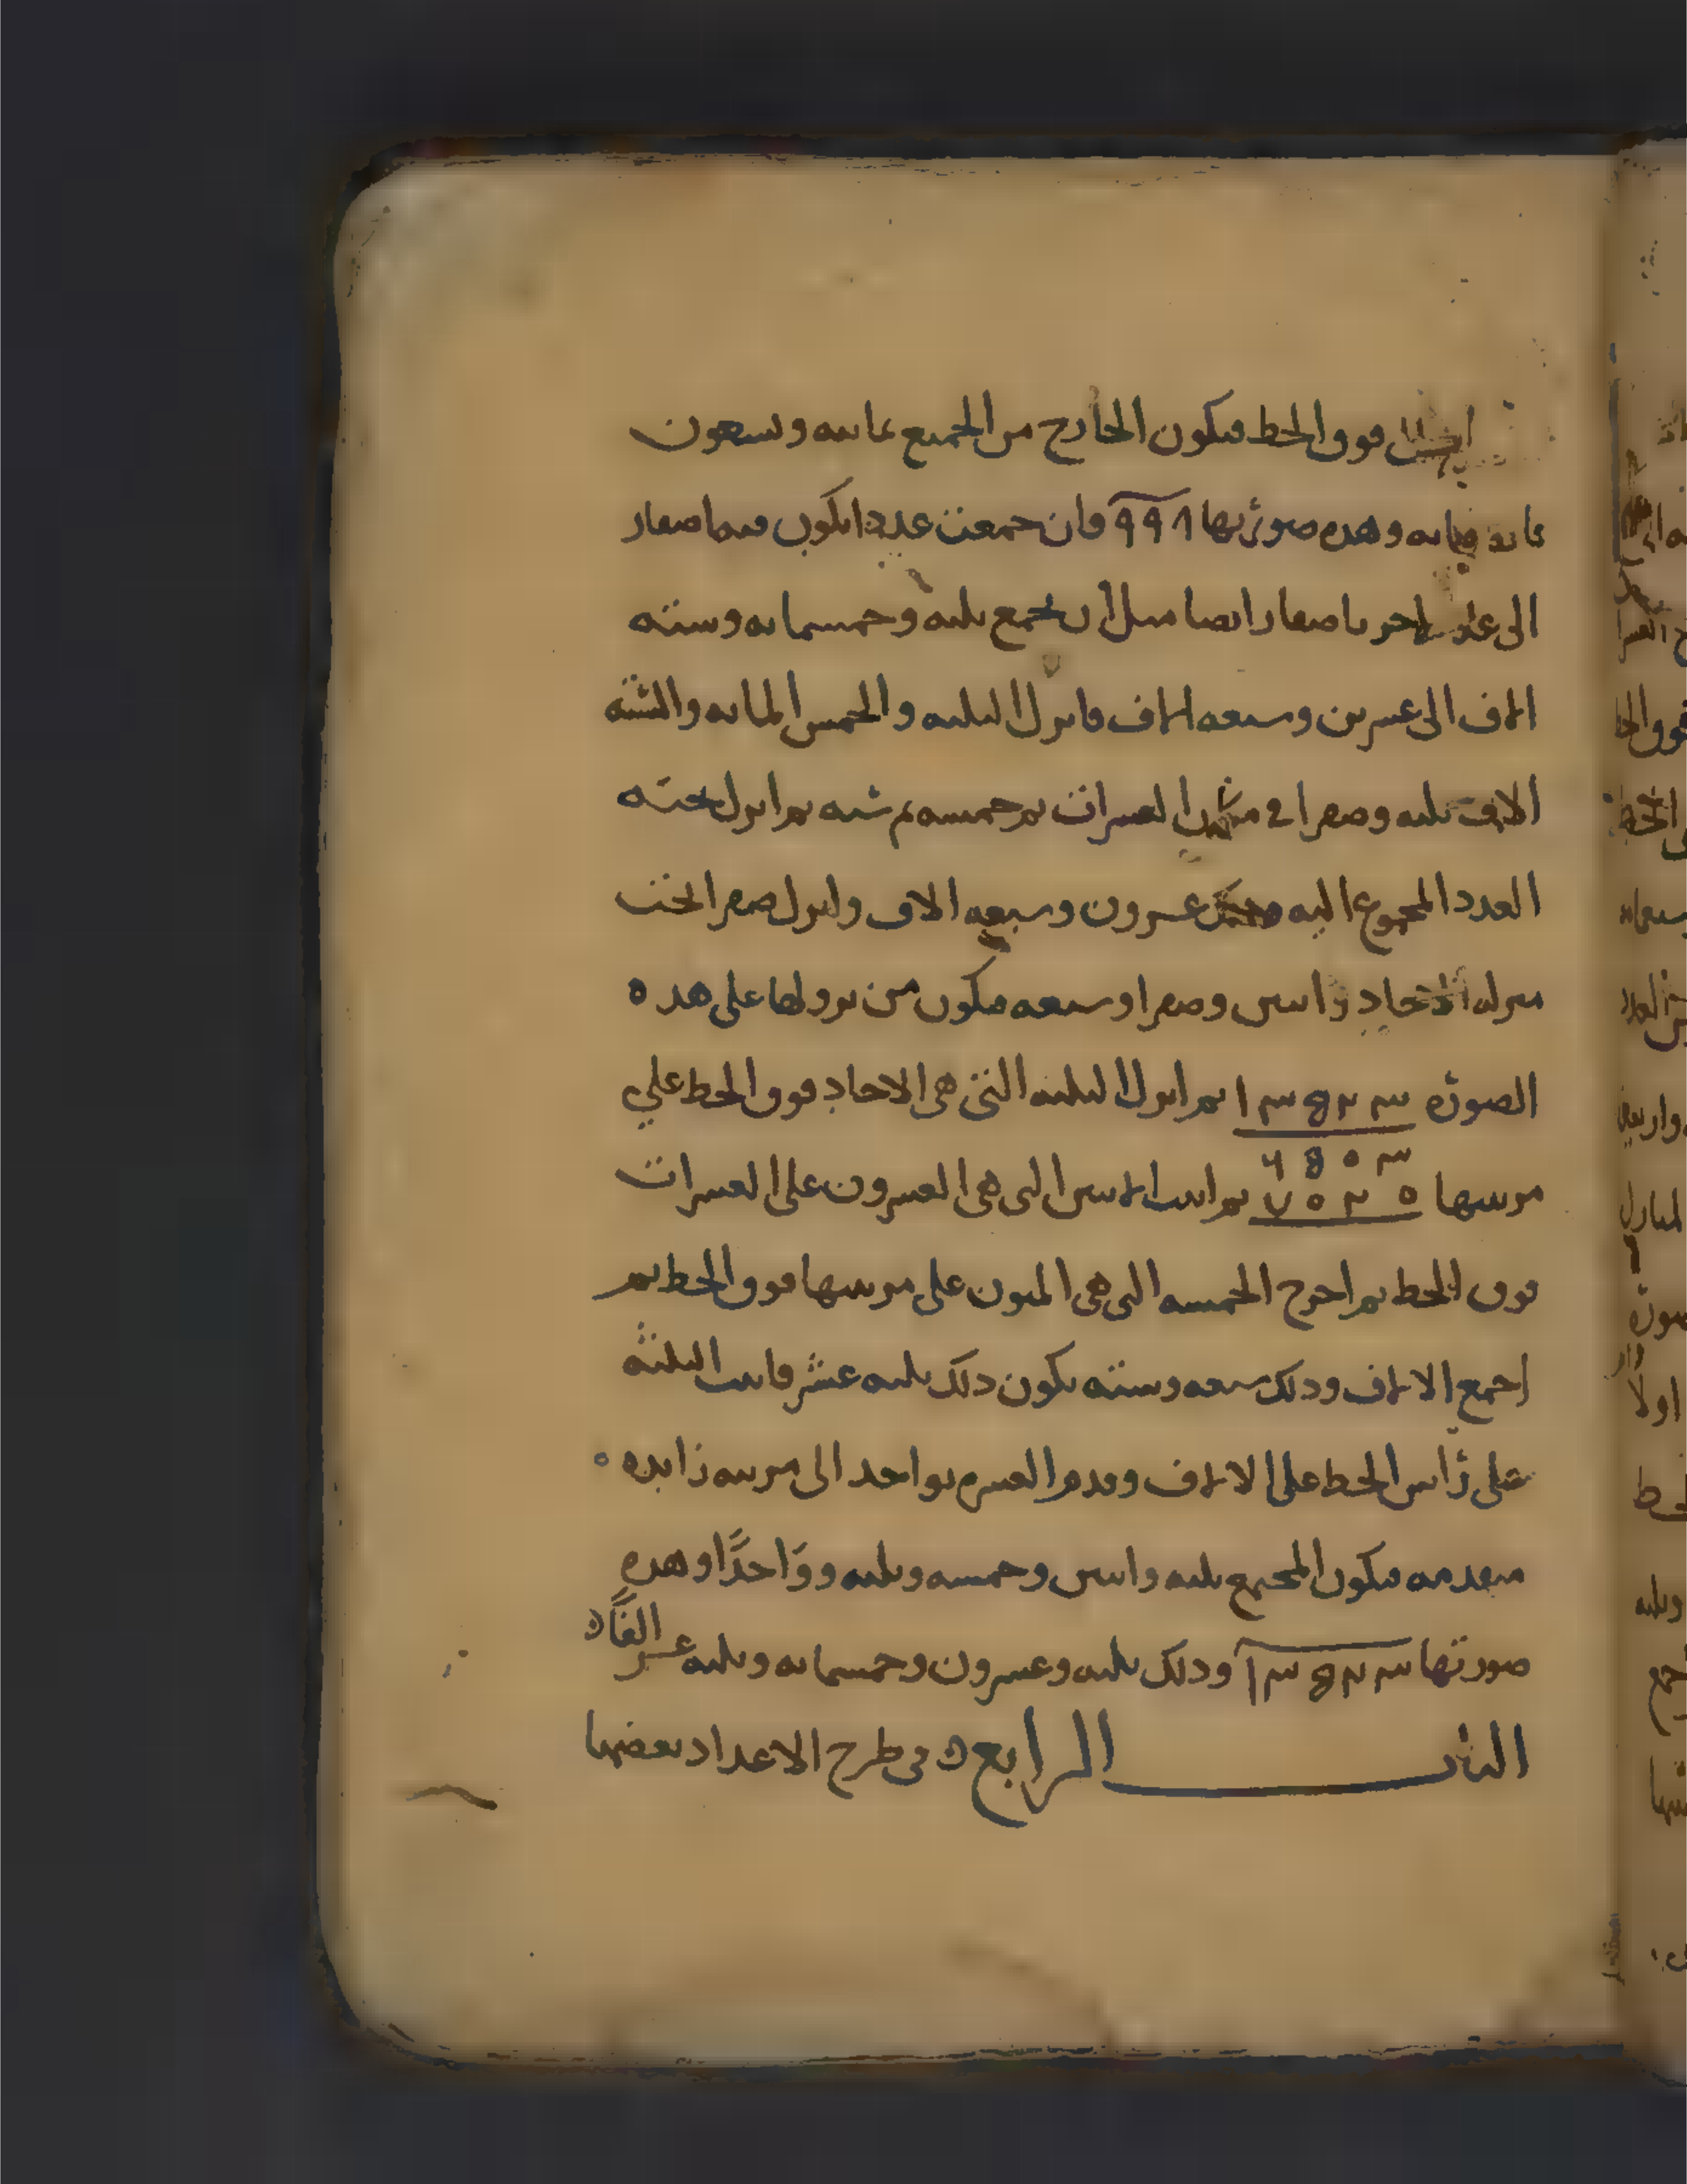 فوق الخط فيكون الخارج من الجميع ثمانيه وتسعون
وهذه صورتها ٩٩٨ فان جمعت عددا يكون فيها اصفار
الى عدد اخر باصفار ايضا مثل ان تجمع ثلثه وخمسمايه وسته
الاف الى عشرين وسبعه الاف فانزل الثلثه والخمس المايه والسته
الالاف ثلثه وصفرا في العشرات ثم خمسه ثم سته ثم انزل تحته
العدد المجموع اليه عشرون وسبعه الاف وانزل صفرا تحت
منزله الاحاد واثنين وصفرا وسبعه فيكون من نزولها على هده
الصورة ١٣٥٢٣ ثم انزل الثلثه التي هي الاحاد فوق الخط على
٦٥٠٣
مرتبتها ٧٠٢٠ ثم اثبت الاثنين التي هي العشرون على العشرات
فوق الخط ثم اخرج الخمسه التي هي الميون على مرتبتها فوق الخط ثم
اجمع الالاف وذلك سبعه وسته يكون ذلك ثلثه عشر فاثبت الثلثه
على رأس الخط على الالاف وقدم العشره بواحد الى مرتبه زايده
متقدمه فيكون المجتمع ثلثه واثنين وخمسه وثلثه وواحدًا وهذه
صورتها ١٣٥٢٣ وذلك ثلثه وعشرون وخمسمايه وثلثه عشر الفًا
الباب الرابع في طرح الاعداد بعضها